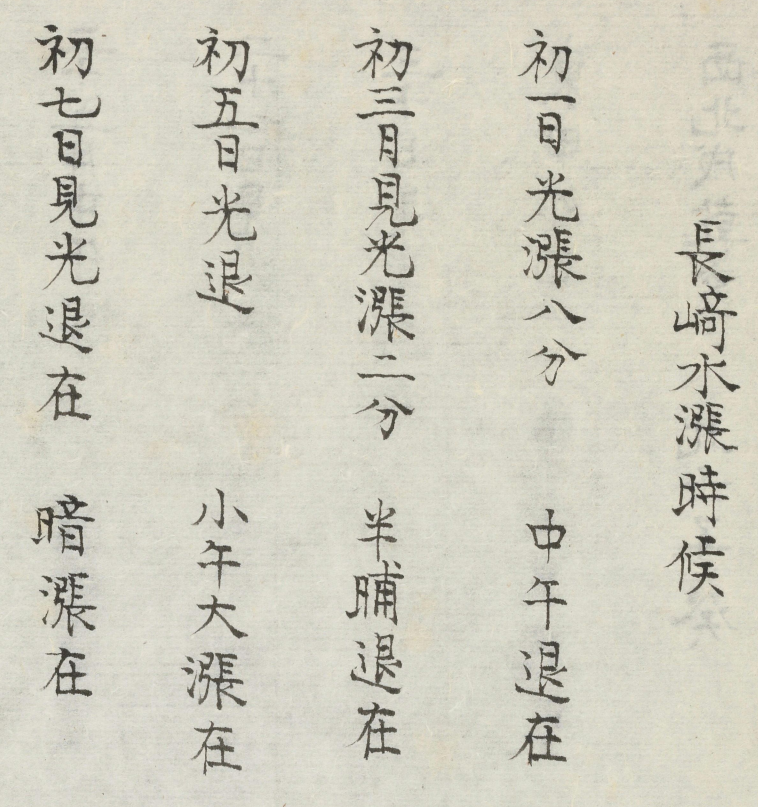 長﨑水漲時候
初一日光漲八分 中午退在
初三月見光漲二分 半晡退在
初五日光退 小午大漲在
初七日見光退在 暗漲在